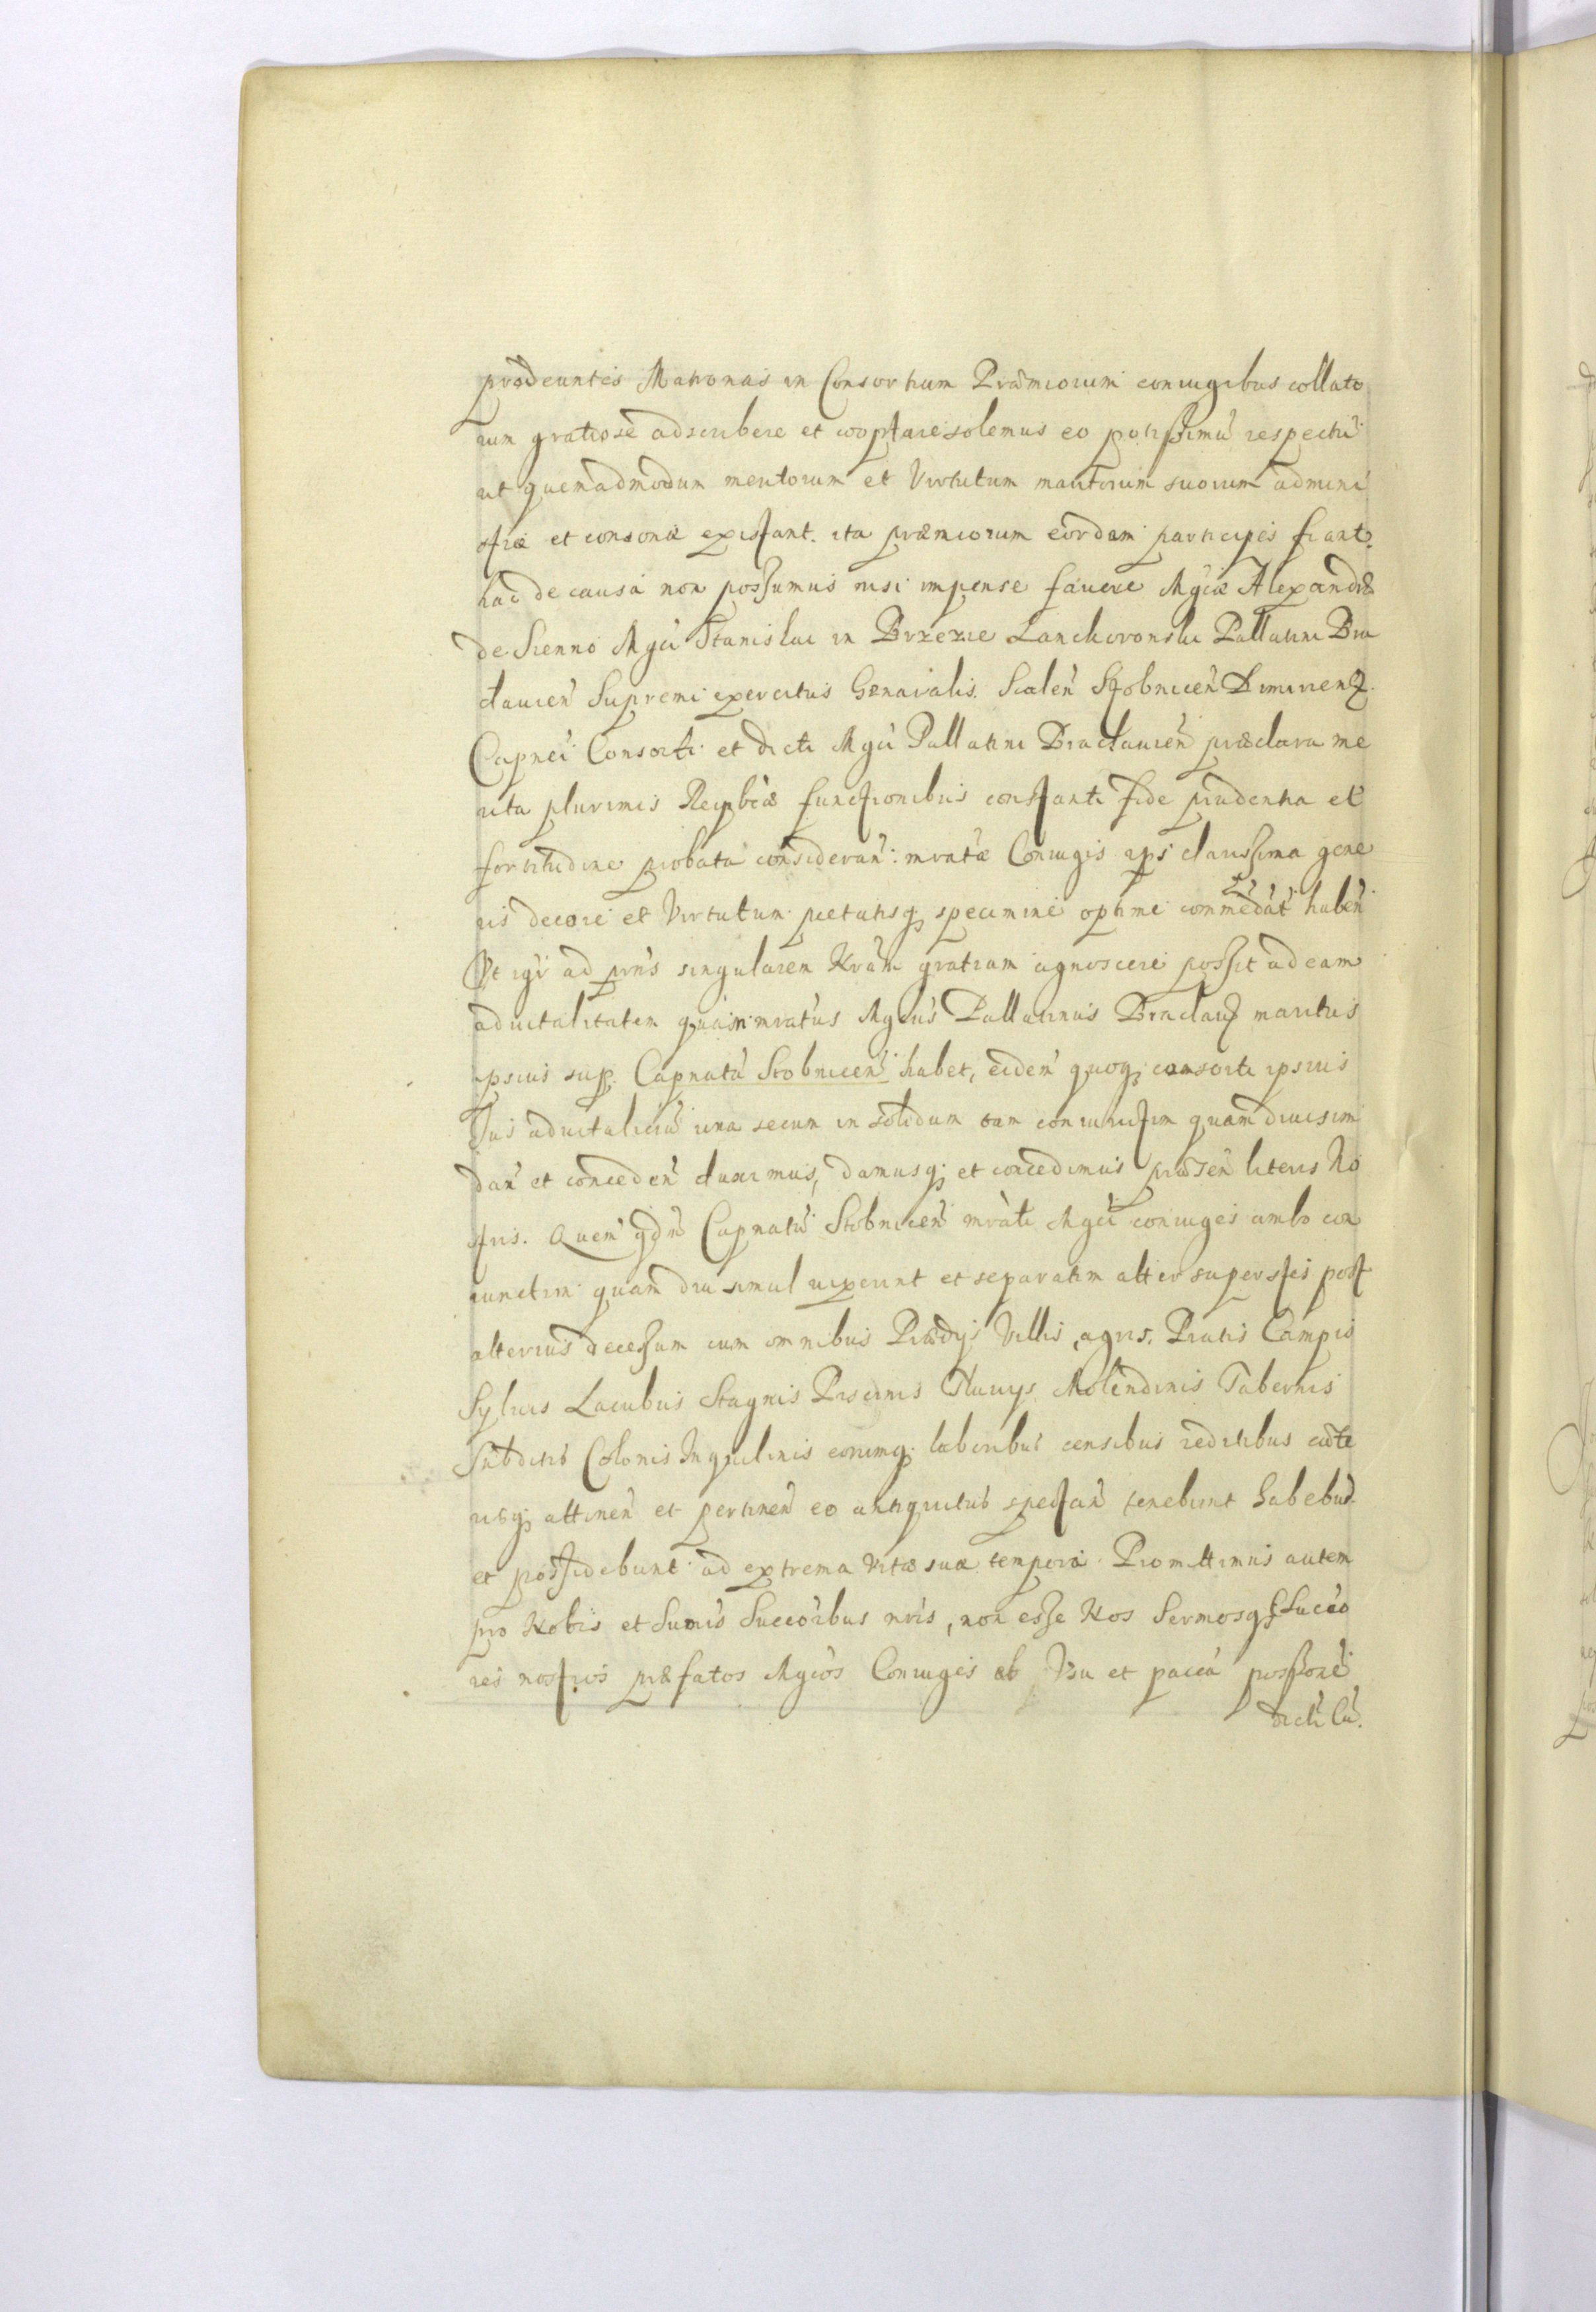 prodeuntes Matronas in Consortium Præmiorum coniugibus collato
rum gratiose adscribere et cooptare solemus eo potissimũ respectu
ut quemadmodum meritorum et Virtutum maritorum suorum admini
stræ et consonæ existant. ita præmiorum eordem participes fiant.
hac de causa non possumus nisi impense fauere Mgcæ Alexandræ
de Sienno Mgci Stanislai in Brzezie Lanckoronski Pallatini Bra
clauien̄ Supremi exercitus Genaralis. Scalen̄ Stobnicen̄ Dimirenz.
Capnei Consorti et dicti Mgci Pallatini Braclauien̄ præclara me
rita plurimis Reipbcæ functionibus constanti fide prudentia et
fortitudine probata consideran̄: mratæ Coniugis ips clarissima gene
ris decore et Virtutum pietatisq; specimine optime commedãt habẽn
Vt igr ad pnns singularem Nram gratiam agnoscere possit ad eam
aduitalitatem quam mratus Mgcus Pallatinus Braclauz maritus
ipsius sup. Capnatu Stobnicen̄ habet, eidem quoq; consorti ipsius
Jus aduitaliciũ una secum in solidum tam coniunctim quam diuisim
dan̄ et conceden̄ duximus, damusq; et concedimus præsen̄ literis No
stris. Quem qdm Capnatũ Stobnicen̄ mrati Mgci coniuges ambo con
iunctim quam diu simul uixerint et separatim alter superstes post
alterius decessum cum omnibus Prædijs Villis, agris. Pratis Campis
Syluis Lacubus Stagnis Piscinis Fluuijs Molendinis Tabernis
Subditis Colonis Inquilinis eorumq; laboribus censibus reditibus cæte
risq; attinen̄ et pertinen̄ eo antiquitus spectan̄ tenebunt habebūt
et possidebunt ad extrema vitæ suæ tempora. Promittimus autem
pro Nobis et Sermis Succoribus nris, non esse Nos Sermosq; Succo
res nostros præfatos Mgcos Coniuges ab Vsu et pacca possone
dicti Ca.